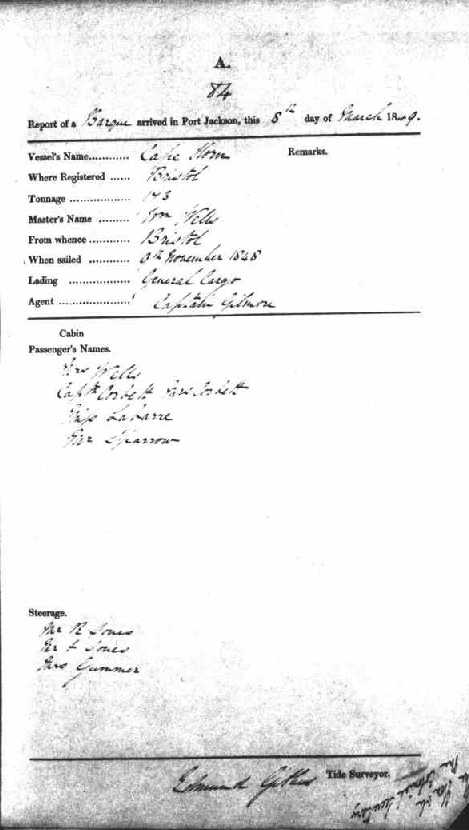 A.
84
Report of a Barque arrived in Port Jackson, this 8th day of March 1849.
Vessel's Name............ Cape Horn Remarks.
Where Registered ...... Bristol
Tonnage ..................
Master's Name ......... Wm Wells
From whence ............ Bristol
When sailed ............ November 1848
Lading .................. General Cargo
Agent ..................... Captain Gilmore
Cabin
Passenger's Names.
Mrs Wells
Captn Corbett Mrs Corbett
Miss
Mr Sparrow
Steerage.
Mr R Jones
Mr Jones
Mrs Gummer
Edmund Tide Surveyor.